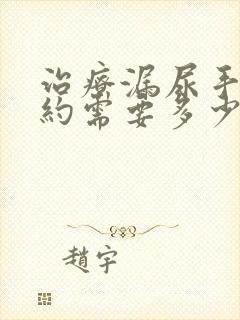 治療漏尿手
約需要多少
趙宇